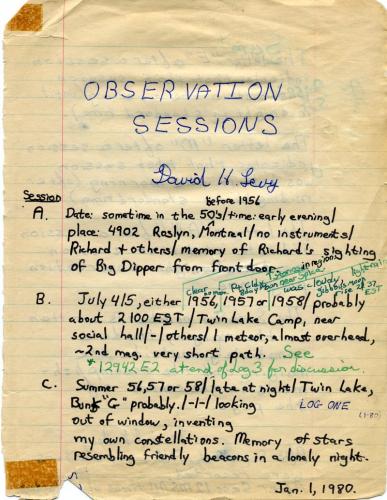 OBSERVATION
SESSIONS
David H. Levy
Session
before 1956
A. Date: sometime in the 50's/time: early evening/
place: 4902 Roslyn, Montreal/no instruments/
Richard + others/memory of Richard's sighting
of Big Dipper from front door.
clear, moon near Spica
was cloudy
EST
B. July 4/5, either 1956, 1957 or 1958/probably
about 2100 EST/Twin Lake Camp, near
social hall/-/others/1 meteor, almost overhead,
~2nd mag. very short path. See
*12942E2 at end of Log 3 for discussion.
C. Summer 56, 57 or 58/late at night/Twin Lake,
Bunk "G" probably./-1-/looking LOG ONE
out of window, inventing (1-80)
my own constellations. Memory of stars
resembling friendly beacons in a lonely night.
Jan. 1, 1980.